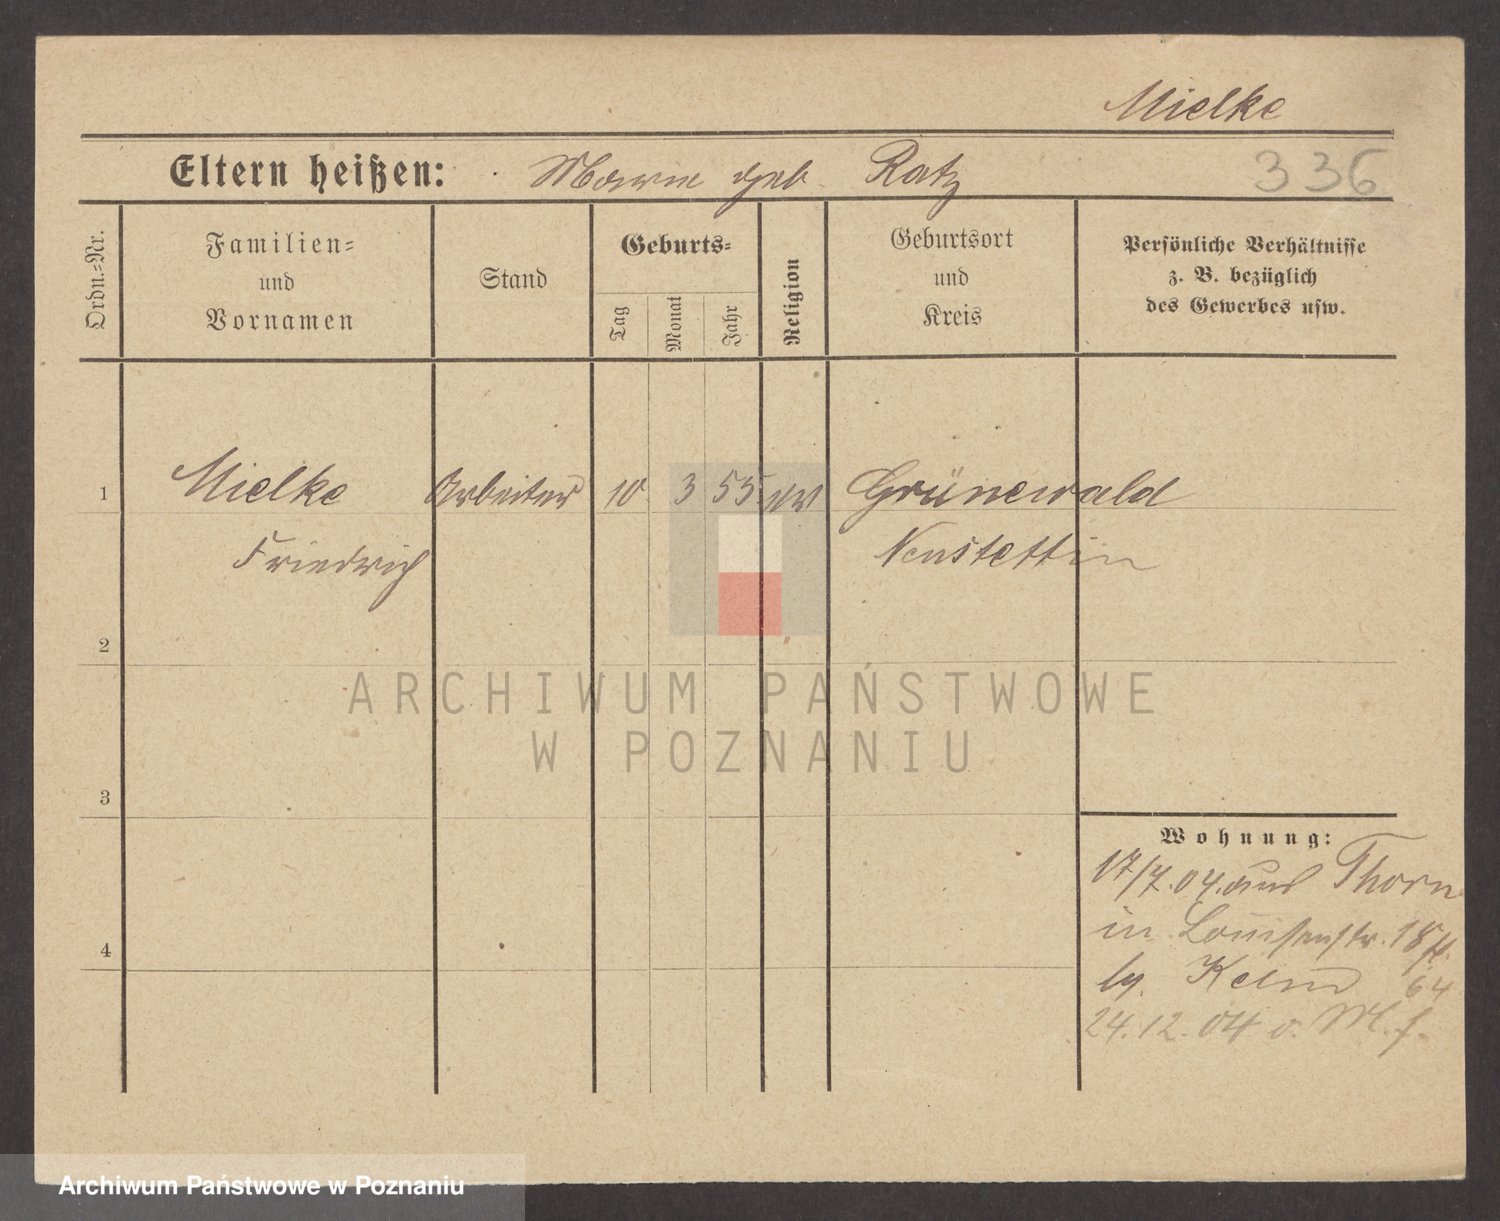 Mielke
Eltern heißen: Marie geb. Ratz
336
Ordn.=Nr.
Familien=
und
Vornamen
Stand
Geburts=
Tag
Monat
Jahr
Religion
Geburtsort
und
Kreis
Persönliche Verhältnisse
z. B. bezüglich
des Gewerbes usw.
1 Mielke Arbeiter 10 3 55 ev Grünewald
Friedrich Neustettin
2
3
4
ARCHIWUM PAŃSTWOWE
W POZNANIU
Wohnung:
17/7.04. aus Thorn
in Louisenstr. 18
Kelm 64
24.12.04
Archiwum Państwowe w Poznaniu